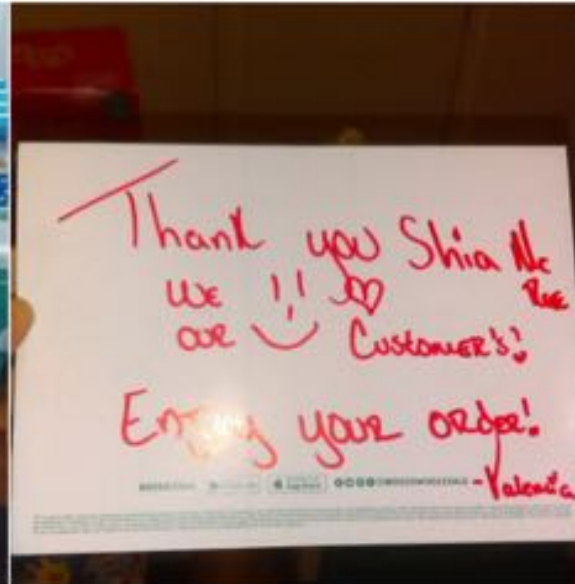 Thank you Shia Mc
Rae
WE
OUR Customer's!
Enjoy your order!
-Valencia